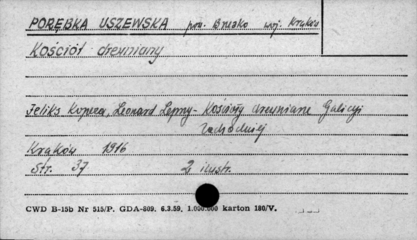 PORĘBKA USZEWSKA pow. Brzesko woj. Kraków
Kościół drewniany
Feliks Kopera, Leonard Lepszy - Kościoły drewniane Galicyi
Zachodniej
Kraków 1916
Str. 37 2 ilustr.
CWD B-15b Nr 515/P. GDA-809. 6.3.59. 1.000.000 karton 180/V.